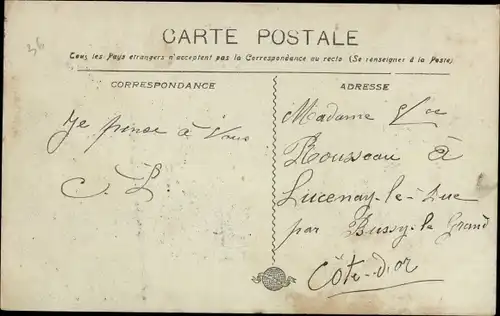 36
CARTE POSTALE
Tous les Pays étrangers n'acceptent pas la Correspondance au recto (Se renseigner à la Poste)
CORRESPONDANCE
ADRESSE
Je pense à Vous
C. L
Madame Vve
Rousseau à
Lucenay-le-Duc
par Bussy-le Grand
Côte-d'or